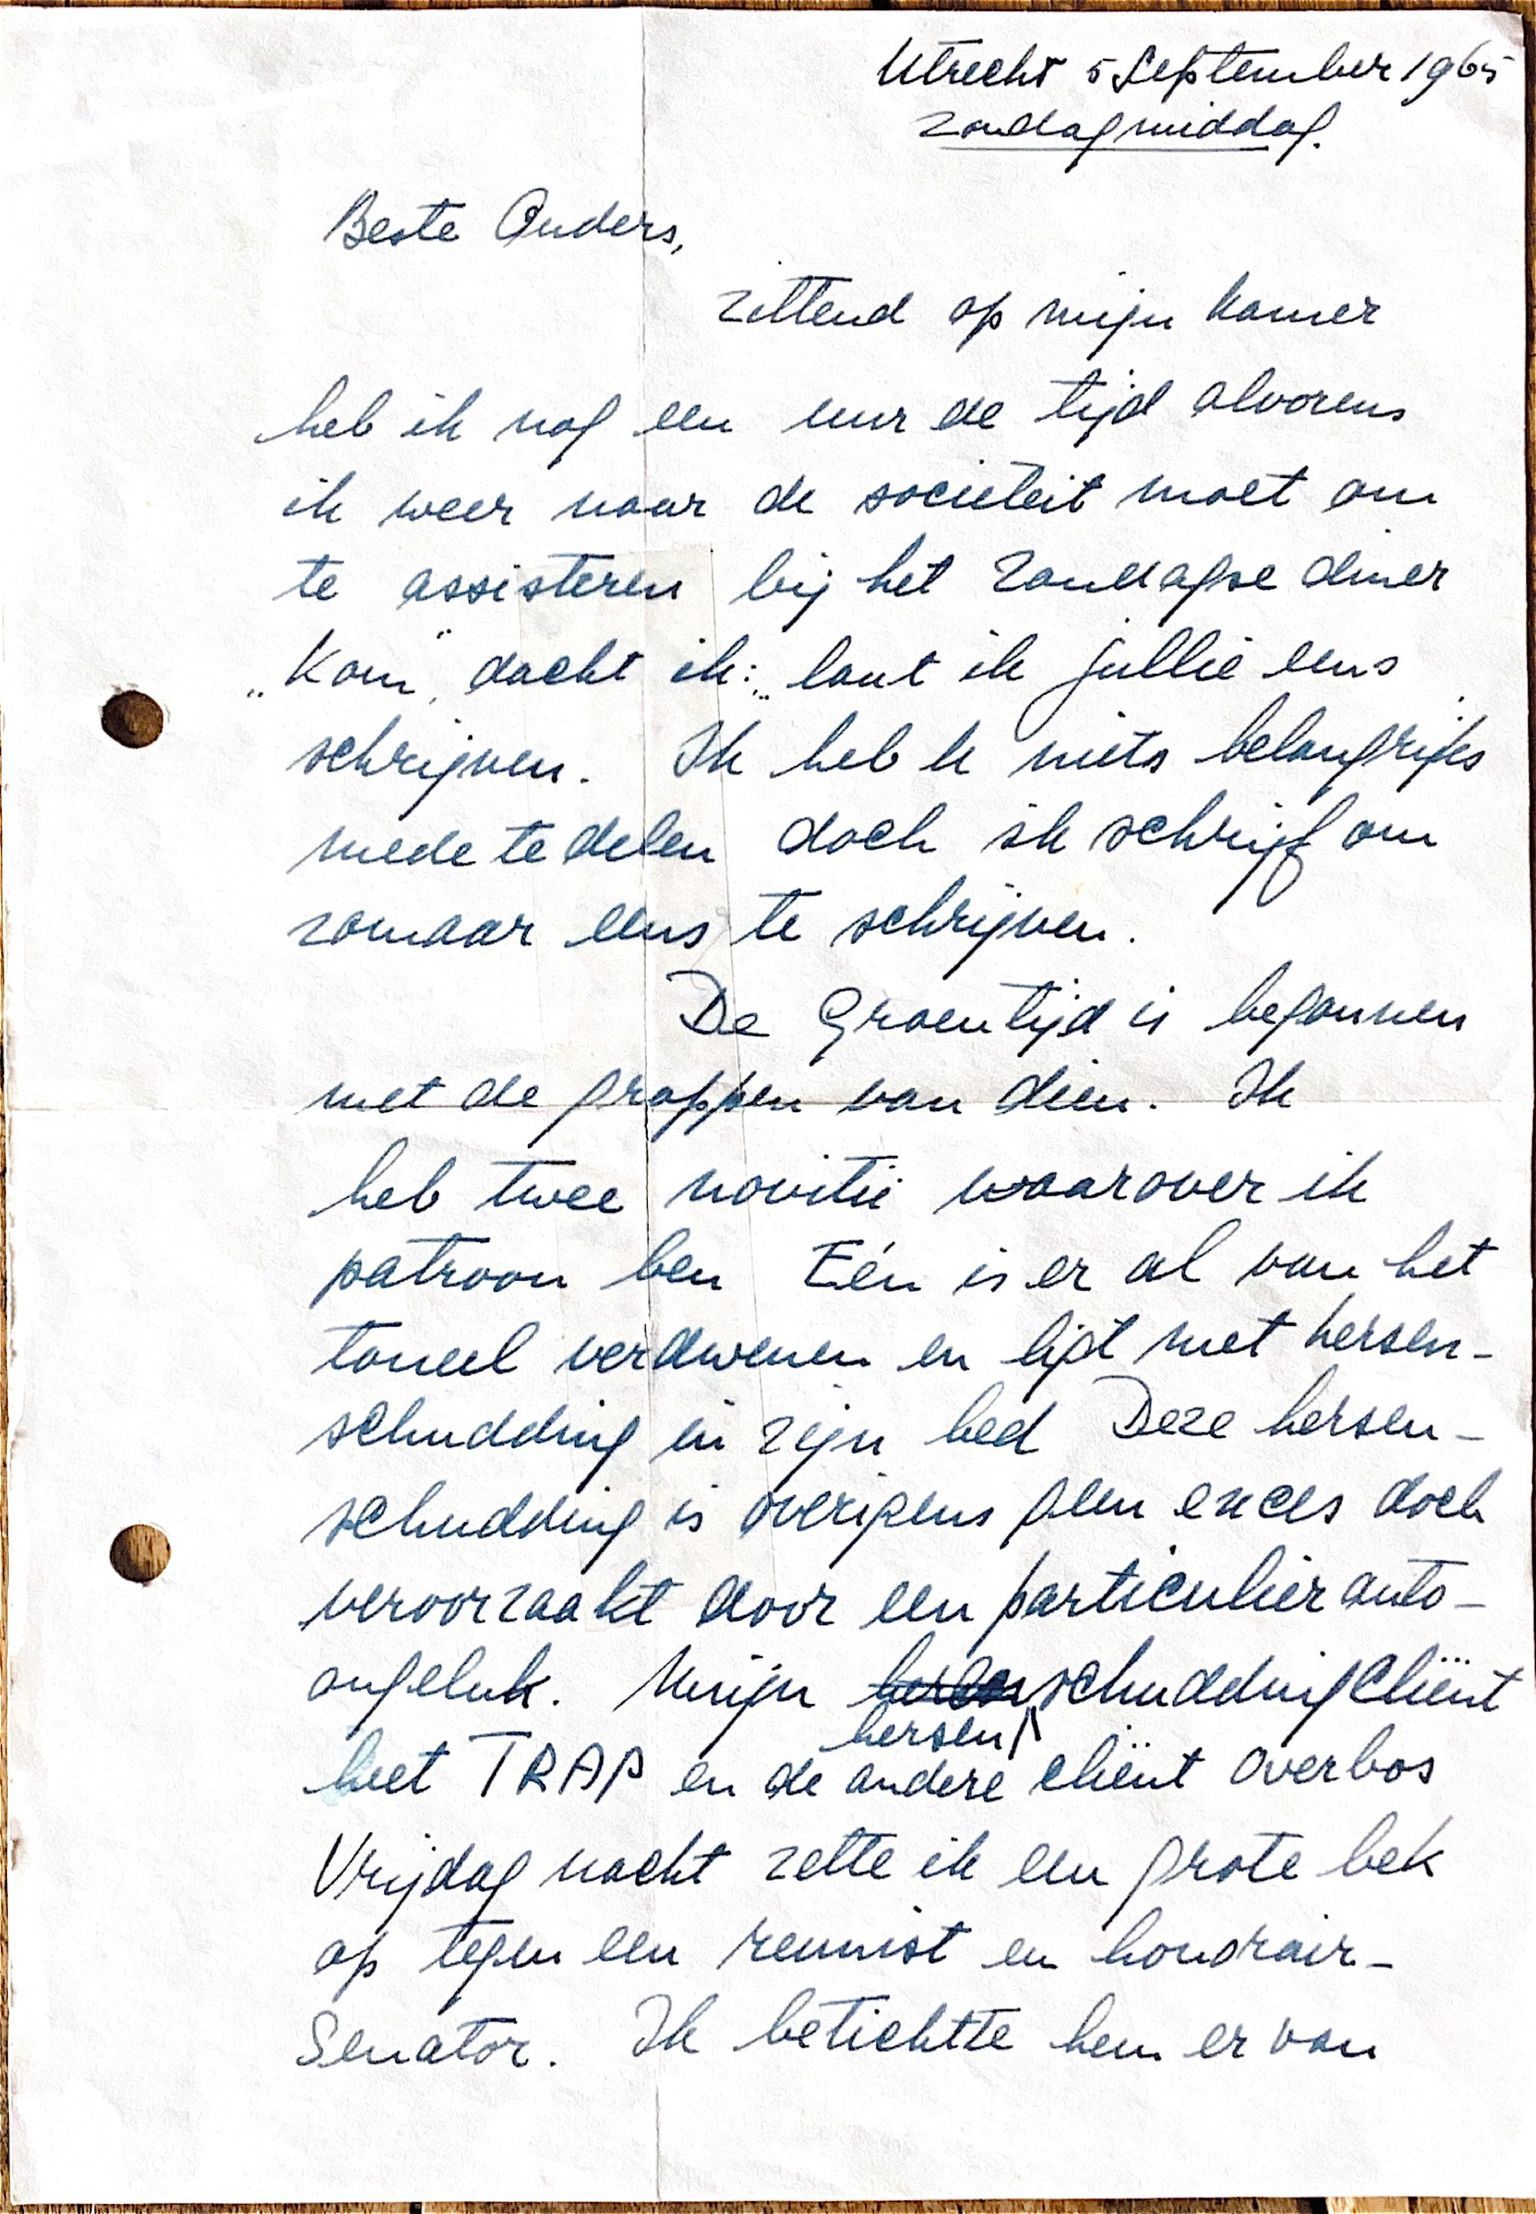 Utrecht 5 September 1965
zondagmiddag.
Beste Ouders,
zittend op mijn kamer
heb ik nog een uur de tijd alvorens
ik weer naar de societeit moet om
te assisteren bij het zondagse diner
„Kom", dacht ik: „laat ik jullie eens
schrijven. Ik heb U niets belangrijks
mede te delen doch ik schrijf om
zomaar eens te schrijven.
De Groentijd is begonnen
met de grappen van dien. Ik
heb twee novitii waarover ik
patroon ben Eén is er al van het
toneel verdwenen en ligt met hersen-
schudding in zijn bed Deze hersen-
schudding is overigens geen exces doch
veroorzaakt door een particulier auto-
ongeluk. Mijn hersenschuddingcliënt
hersen
heet TRAP en de andere cliënt Overbos
Vrijdag nacht zette ik een grote bek
op tegen een reunist en honorair-
Senator. Ik betichtte hem er van